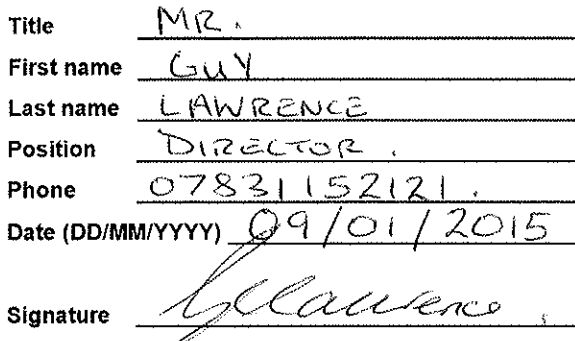 Title MR.
First name GUY
Last name LAWRENCE
Position DIRECTOR.
Phone 07831152121.
Date (DD/MM/YYYY) 09/01/2015
Signature GLawrence.